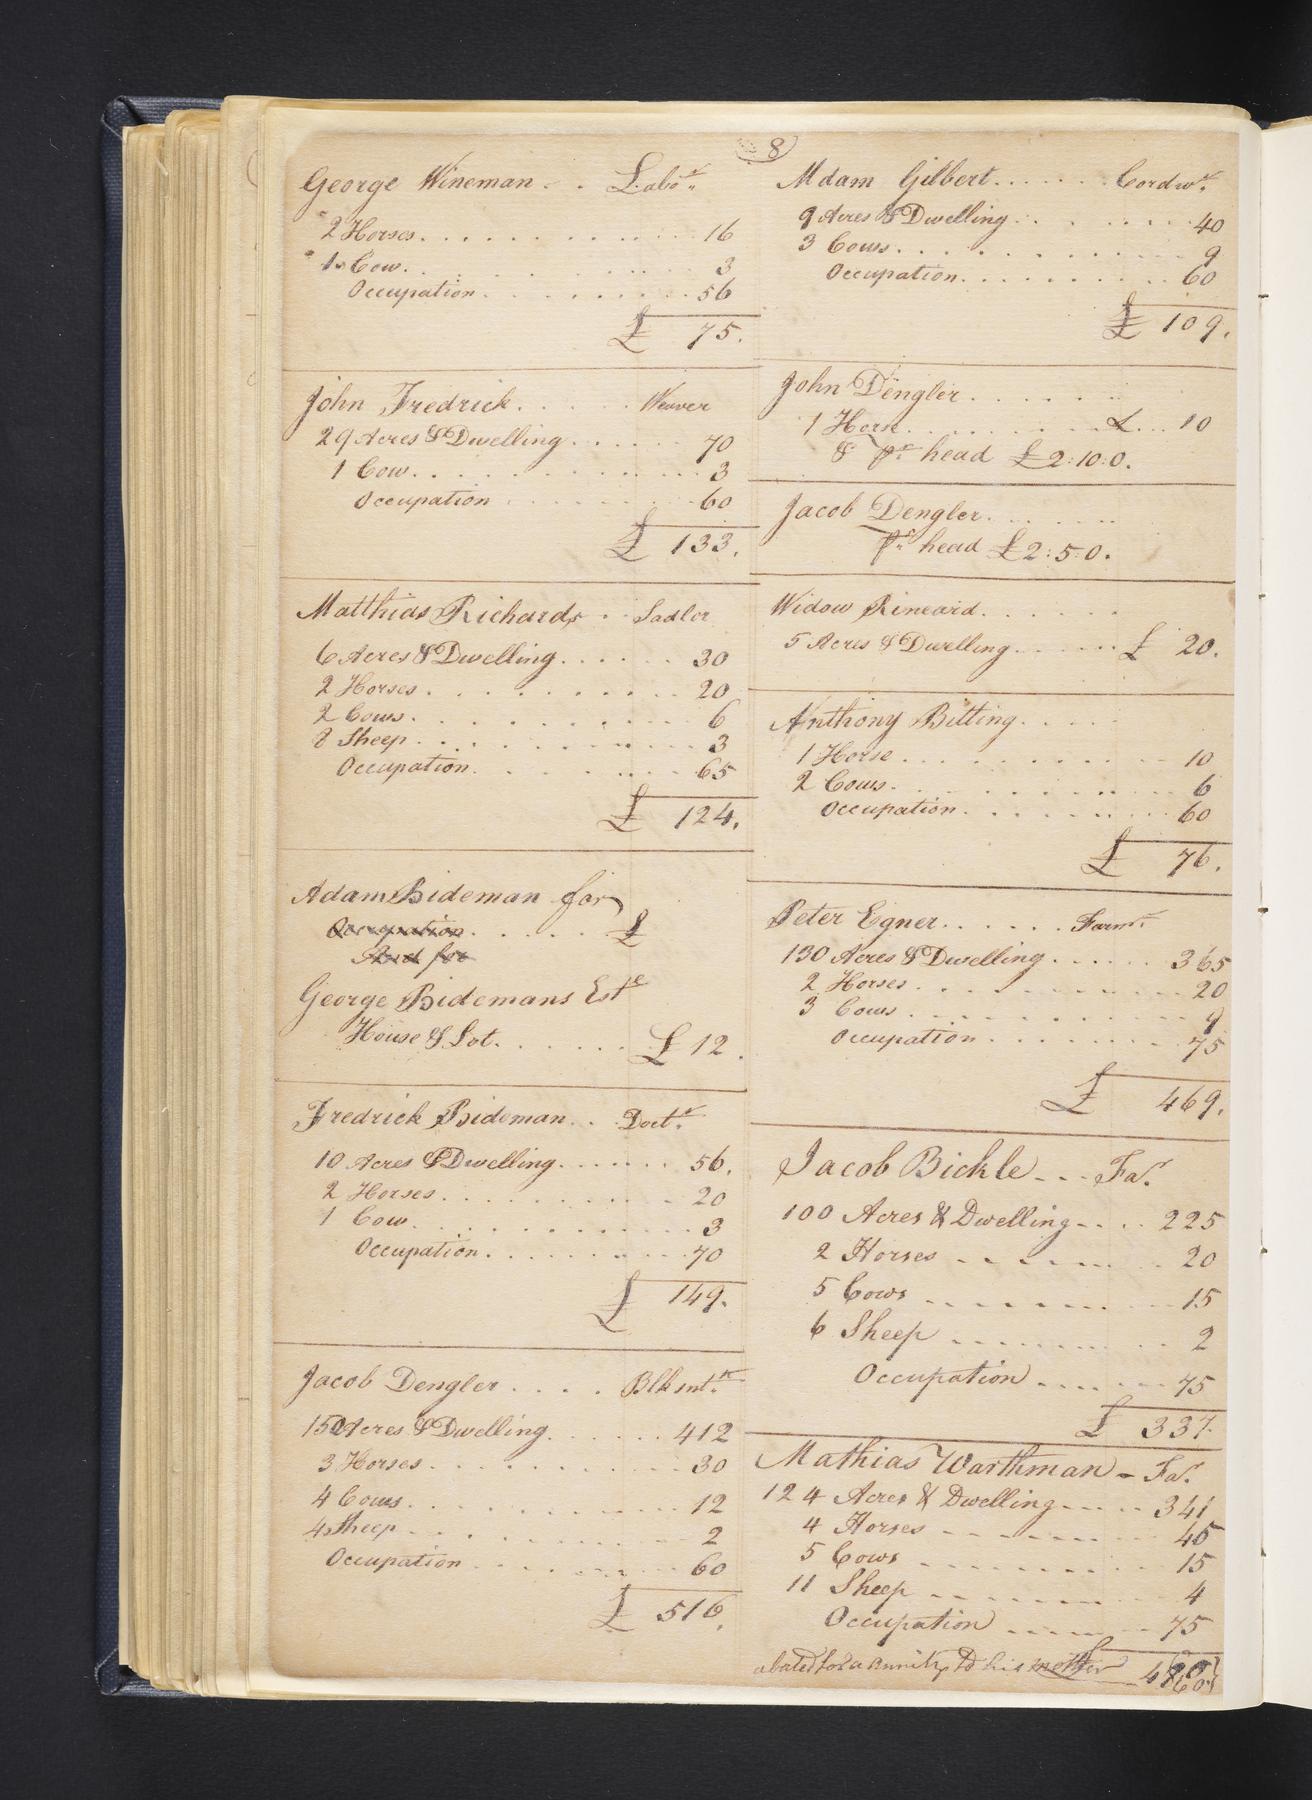 8
George Wineman . . Labor.
2 Horses . . . . . . . . . . 16
1 Cow . . . . . . . . . . 3
Occupation . . . . . . . . 56
£ 75.
John Fredrick . . . . . Weaver
29 Acres & Dwelling . . . . . . 70
1 Cow . . . . . . . . . . 3
Occupation . . . . . . . . 60
£ 133.
Matthias Richards . . Sadler
6 Acres & Dwelling . . . . . . 30
2 Horses . . . . . . . . . . 20
2 Cows . . . . . . . . . . 6
8 Sheep . . . . . . . . . . 3
Occupation . . . . . . . . 65
£ 124.
Adam Bideman for
Occupation . . . . . £
And for
George Bidemans Este
House & Lot . . . . . . £ 12.
Fredrick Bideman . . Doctr.
10 Acres & Dwelling . . . . . . 56.
2 Horses . . . . . . . . . . 20
1 Cow . . . . . . . . . . 3
Occupation . . . . . . . . 70
£ 149.
Jacob Dengler . . . . Blksmtr.
150 Acres & Dwelling . . . . . . 412
3 Horses . . . . . . . . . . 30
4 Cows . . . . . . . . . . 12
4 Sheep . . . . . . . . . . 2
Occupation . . . . . . . . 60
£ 516.
Adam Gilbert . . . . . . Cordwr.
9 Acres & Dwelling . . . . . . 40
3 Cows . . . . . . . . . . 9
Occupation . . . . . . . . 60
£ 109.
John Dengler . . . . . .
1 Horse . . . . . . . . £ . . . 10
& pr. head £ 2:10:0.
Jacob Dengler . . . . . .
pr. head £ 2:5:0.
Widow Rineard . . . . . .
5 Acres & Dwelling . . . . . . £ 20.
Anthony Bitting . . . . .
1 Horse . . . . . . . . . . 10
2 Cows . . . . . . . . . . 6
Occupation . . . . . . . . 60
£ 76.
Peter Egner . . . . . . Farmr.
130 Acres & Dwelling . . . . . . 365
2 Horses . . . . . . . . . . 20
3 Cows . . . . . . . . . . 9
Occupation . . . . . . . . 75
£ 469.
Jacob Bickle - - - Far.
100 Acres & Dwelling - - . . 225
2 Horses - - - - - - 20
5 Cows - - - - - - 15
6 Sheep - - - - - - 2
Occupation - - - - - 75
£ 337.
Mathias Warthman - Far.
124 Acres & Dwelling - - - - 341
4 Horses - - - - - - 45
5 Cows - - - - - - 15
11 Sheep - - - - - - 4
Occupation - - - - - 75
abated for a annity to his mother